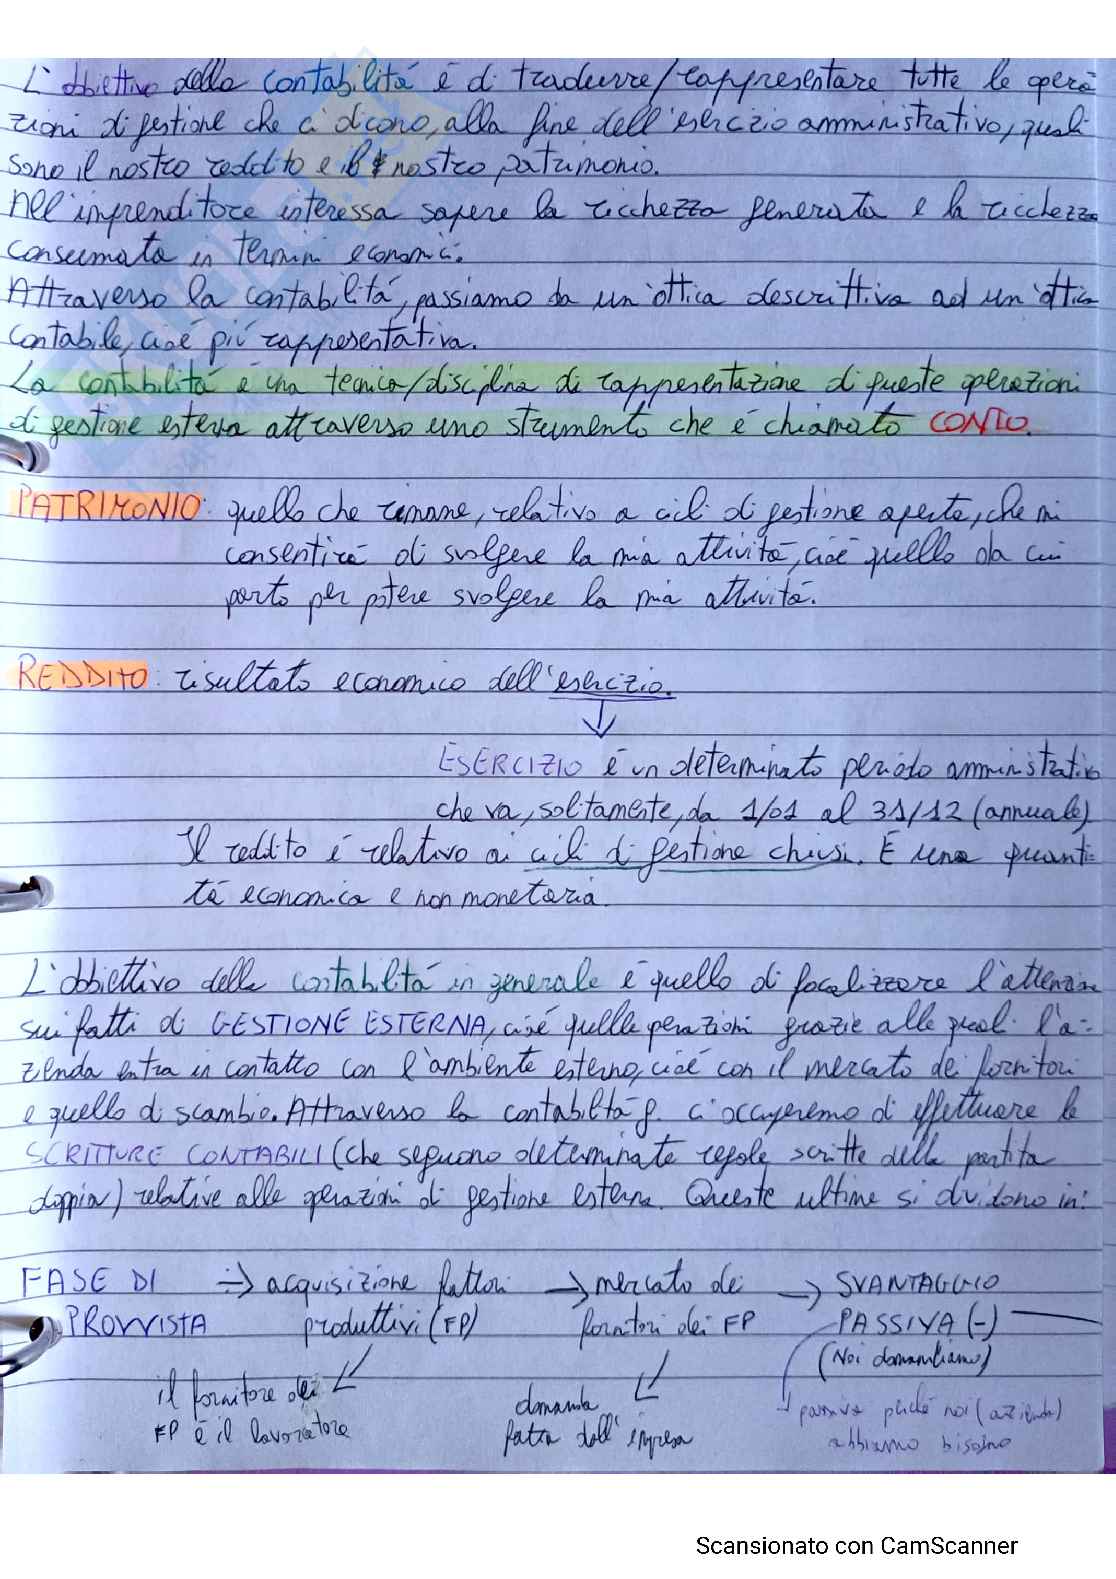 L'obbiettivo della contabilitá é di tradurre/rappresentare tutte le opera
zioni di gestione che ci dicono, alla fine dell'esercizio amministrativo, quali
sono il nostro reddito e il nostro patrimonio.
All'imprenditore interessa sapere la ricchezza generata e la ricchezza
consumata in termini economici.
Attraverso la contabilitá, passiamo da un'ottica descrittiva ad un'ottica
contabile, cioé piú rappresentativa.
La contabilitá é una tecnica/disciplina di rappresentazione di queste operazioni
di gestione esterna attraverso uno strumento che é chiamato CONTO.
PATRIMONIO: quello che rimane, relativo a cicli di gestione aperta, che mi
consentirá di svolgere la mia attivitá, cioé quello da cui
parto per potere svolgere la mia attivitá.
REDDITO: risultato economico dell'esercizio.
ESERCIZIO é un determinato periodo amministrativo
che va, solitamente, da 1/01 al 31/12 (annuale)
Il reddito é relativo ai cicli di gestione chiusi. É una quanti-
tá economica e non monetaria.
L'obbiettivo della contabilitá in generale é quello di focalizzare l'attenzione
sui fatti di GESTIONE ESTERNA, cioé quelle operazioni grazie alle quali l'a-
zienda entra in contatto con l'ambiente esterno, cioé con il mercato dei fornitori
e quello di scambio. Attraverso la contabilitá g. ci occuperemo di effettuare le
SCRITTURE CONTABILI (che seguono determinate regole scritte della partita
doppia) relative alle operazioni di gestione esterna. Queste ultime si dividono in:
FASE DI PROVVISTA → acquisizione fattori produttivi (FP) → mercato dei fornitori dei FP → SVANTAGGIO PASSIVA (-)
(Noi domandiamo)
il fornitore dei FP é il lavoratore
domanda fatta dall'impresa
passiva perché noi (azienda) abbiamo bisogno
Scansionato con CamScanner